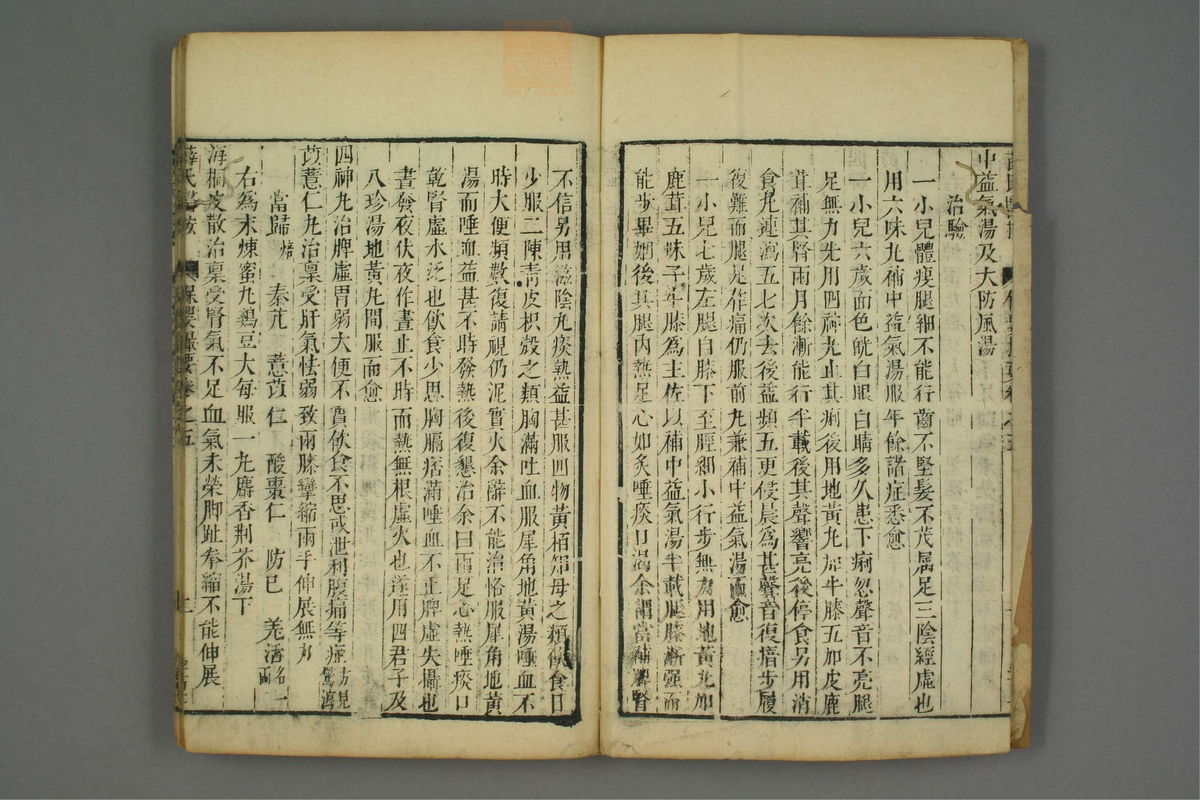 中益氣湯及大防風湯
治驗
一小兒體瘦腿細不能行齒不堅髮不茂属足三陰經虛也
用六味丸補中益氣湯服年餘諸症悉愈
一小兒六歲面色㿠白眼白睛多久患下痢忽聲音不亮腿
足無力先用四神丸止其痢後用地黃丸加牛膝五加皮鹿
茸補其腎兩月餘漸能行半載後其聲響亮後停食另用消
食丸連瀉五七次去後益頻五更侵晨為甚聲音復瘖步履
復難而腿足作痛仍服前丸兼補中益氣湯而愈
一小兒七歲左腿自膝下至脛細小行步無力用地黃丸加
鹿茸五味子牛膝為主佐以補中益氣湯半載腿膝漸强而
能步畢姻後其腿內熱足心如炙唾痰口渴余謂當補脾腎
不信另用滋陰丸痰熱益甚服四物黃栢知母之類飲食日
少服二陳靑皮枳殼之類胸滿吐血服犀角地黃湯唾血不
時大便頻數復請視仍泥實火余辭不能治恪服犀角地黃
湯而唾血益甚不時發熱後復懇治余曰兩足心熱唾痰口
乾腎虛水泛也飲食少思胸膈痞滿唾血不止脾虛失攝也
晝發夜伏夜作晝止不時而熱無根虛火也遂用四君子及
八珍湯地黃丸間服而愈
四神丸治脾虛胃弱大便不實飲食不思或泄利腹痛等症方見驚瀉
薏苡仁丸治稟受肝氣怯弱致兩膝攣縮兩手伸展無力
當歸焙 秦艽 薏苡仁 酸棗仁 防巳 羌活各一兩
右為末煉蜜丸鷄豆大每服一丸麝香荆芥湯下
海桐皮散治稟受腎氣不足血氣未榮脚趾拳縮不能伸展
薛氏醫按 保嬰撮要卷之五